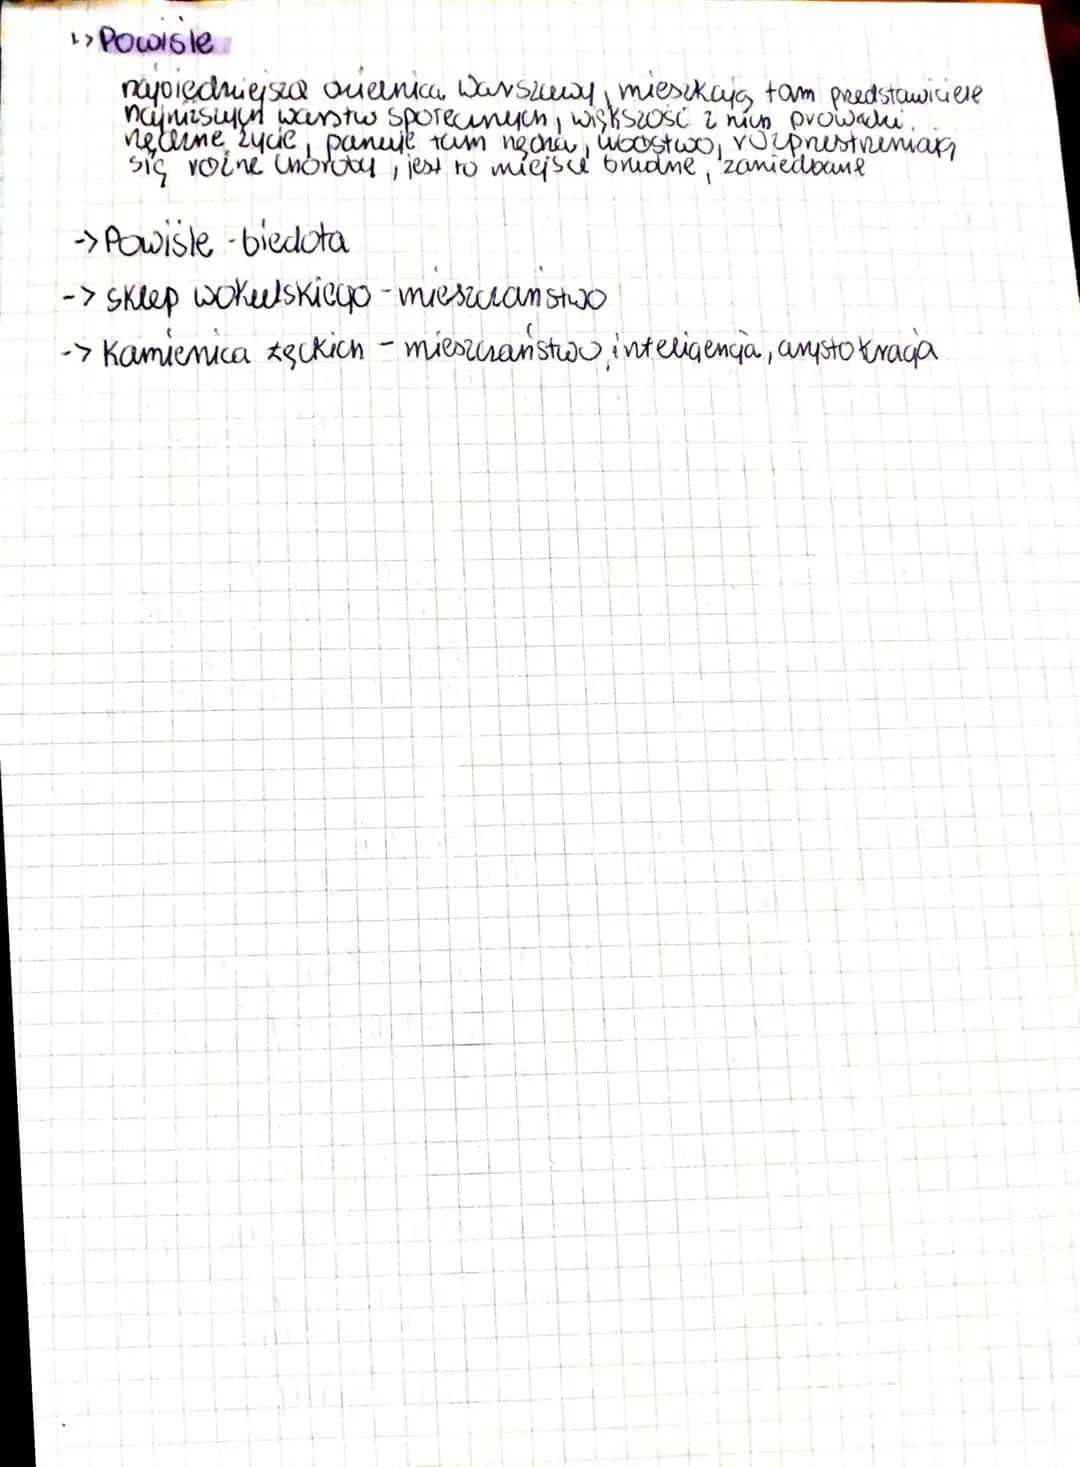 ↳ Powiśle
najbiedniejsza dzielnica Warszawy, mieszkają tam przedstawiciele
najniższych warstw społecznych, większość z nich prowadzi
nędzne życie, panuje tam nędza, ubóstwo, rozprzestrzeniają
się różne choroby, jest to miejsce brudne, zaniedbane
-> Powiśle - biedota
-> sklep Wokulskiego - mieszczaństwo
-> Kamienica Łęckich - mieszczaństwo, inteligencja, arystokracja